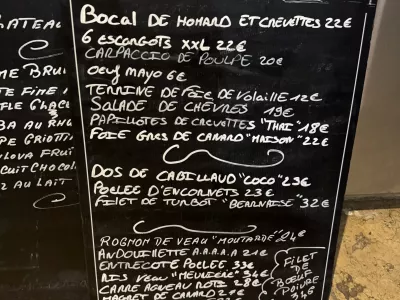 BOCAL DE HOMARD ET CREVETTES 22€
6 escargots XXL 22€
CARPACCIO DE POULPE 20€
oeuf mayo 6€
TERRINE DE Foie DE VOLAILLE 12€
SALADE DE CHÈVRES 19€
PAPILLOTES DE CREVETTES "THAI" 18€
FOIE GRAS DE CANARD "MAISON" 22€
DOS DE CABILLAUD "COCO" 23€
POELEE D'ENCORNETS 23€
FILET DE TURBOT "BEARNAISE" 32€
ROGNON DE VEAU "MOUTARDE" 24€
ANDOUILLETTE A.A.A.A.A 21€
ENTRECOTE POELEE 33€
RIS VEAU "MEUNIERE" 34€
CARRE AGNEAU ROTI 28€
MAGRET DE CANARD
FILET
DE
BOEUF
POIVRE
34€
ATEAU
ME BRU
FINE
AU RH
GRIOTT
LOVA FRUI
SCUIT CHOCOL
AU LAIT